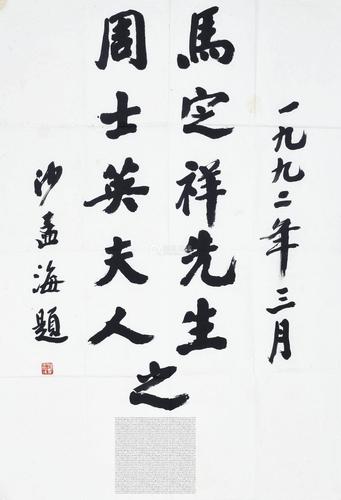 一九九二年三月
馬定祥先生
周士英夫人
之
沙孟海題